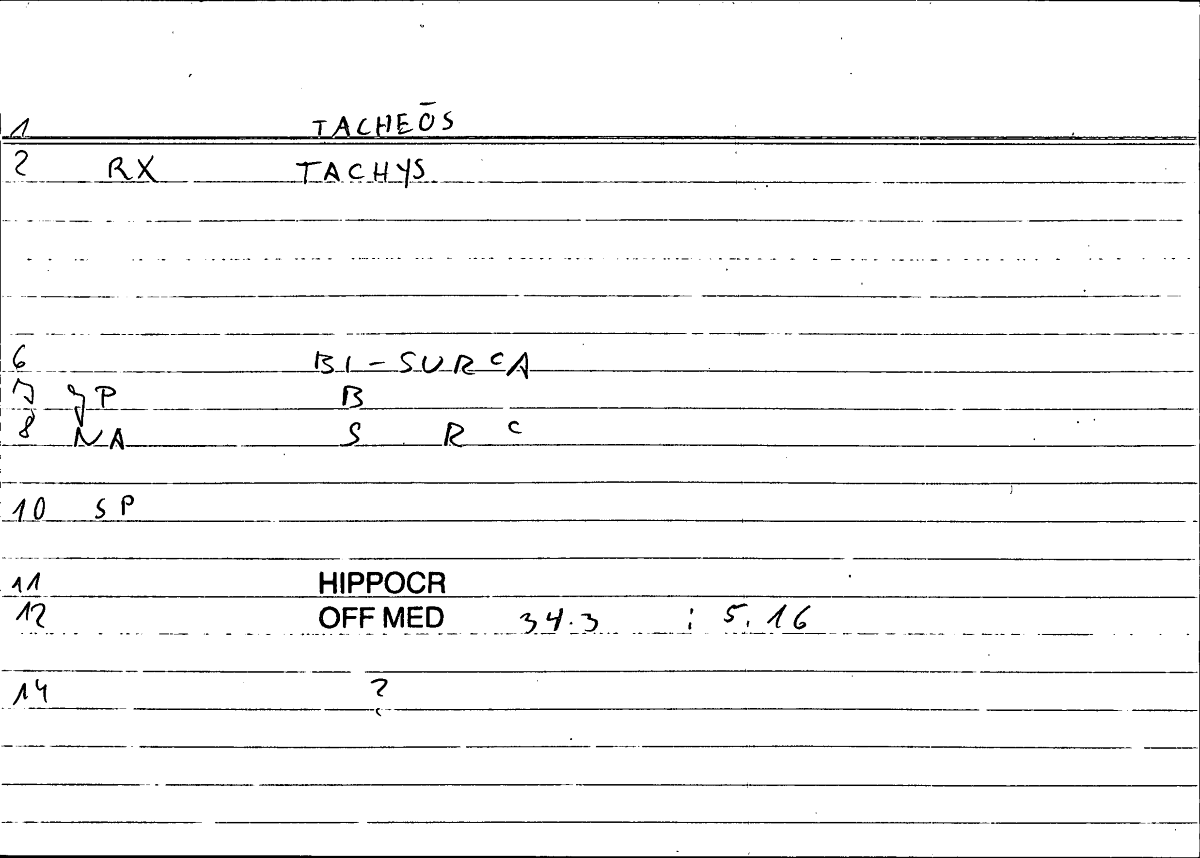 1 TACHEŌS
2 RX TACHYS
6 BI-SURCA
7 JP B
8 NA S R C
10 SP
11 HIPPOCR
12 OFF MED 34.3 : 5.16
14 ?